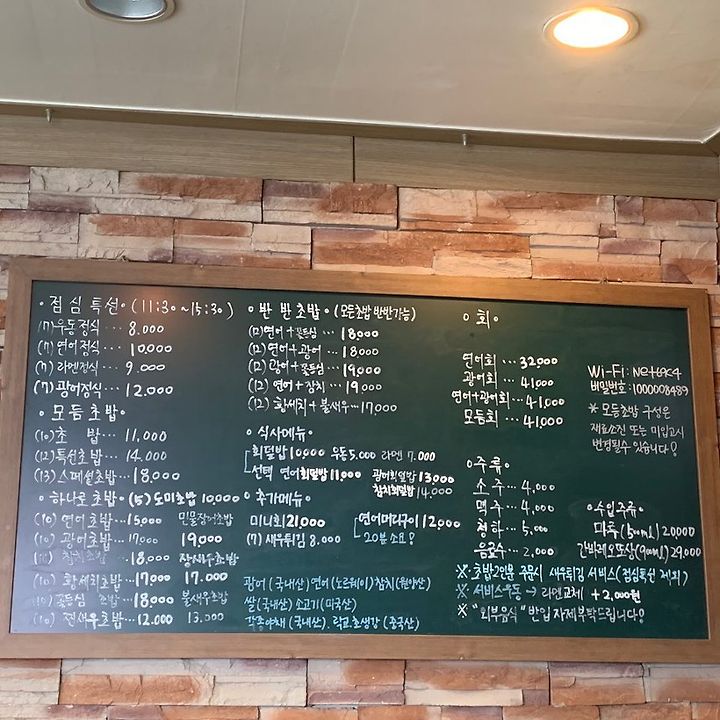 •점심특선• (11:30~15:30)
(7)우동정식 ... 8.000
(7)연어정식 ... 10,000
(7)라멘정식 ... 9.000
(7)광어정식 ... 12,000
•모듬초밥•
(10)초 밥 ... 11,000
(12)특선초밥 ... 14.000
(13)스페셜초밥 ... 18,000
•하나로 초밥• (5) 도미초밥 10,000
(10) 연어초밥 ... 15,000 민물장어초밥
(10) 광어초밥 ... 17,000 19,000
(10) 참치초밥 ... 18,000 장새우초밥
(10) 황새치초밥 ... 17,000 17.000
(10) 꽃등심초밥 ... 18,000 불새우초밥
(10) 전새우초밥 ... 12.000 13.000
•반반초밥• (모듬초밥 반반가능)
(12)연어+꽃등심 ... 18,000
(12)연어+광어 ... 18000
(12)광어+꽃등심 ... 19,000
(12)연어+참치 ... 19,000
(12)황새치+불새우 ... 17,000
•식사메뉴•
회덮밥 10,000 우동5.000 라멘 7.000
선택 연어회덮밥 11,000 광어회덮밥 13,000
참치회덮밥 14,000
•추가메뉴•
미니회 21,000 연어머리구이 12,000
(7) 새우튀김 8.000 20분 소요!
광어(국내산) 연어(노르웨이) 참치(원양산)
쌀(국내산) 소고기(미국산)
각종야채(국내산). 락교.초생강(중국산)
•회•
연어회 ... 32,000
광어회 ... 41,000
연어+광어회 ... 41,000
모듬회 ... 41,000
•주류•
소주 ... 4,000
맥주 ... 4,000
청하 ... 5,000
음료수 ... 2,000
Wi-Fi: net69k4
비밀번호: 1000008489
*모듬초밥 구성은
재료소진 또는 미입고시
변경될수 있습니다!
•수입주류•
마루(500ml) 20,000
간바레오또상(900ml) 29,000
※ 초밥2인분 주문시 새우튀김 서비스(점심특선 제외)
※ 서비스우동 → 라멘교체 +2,000원
※ "외부음식" 반입 자제부탁드립니다!